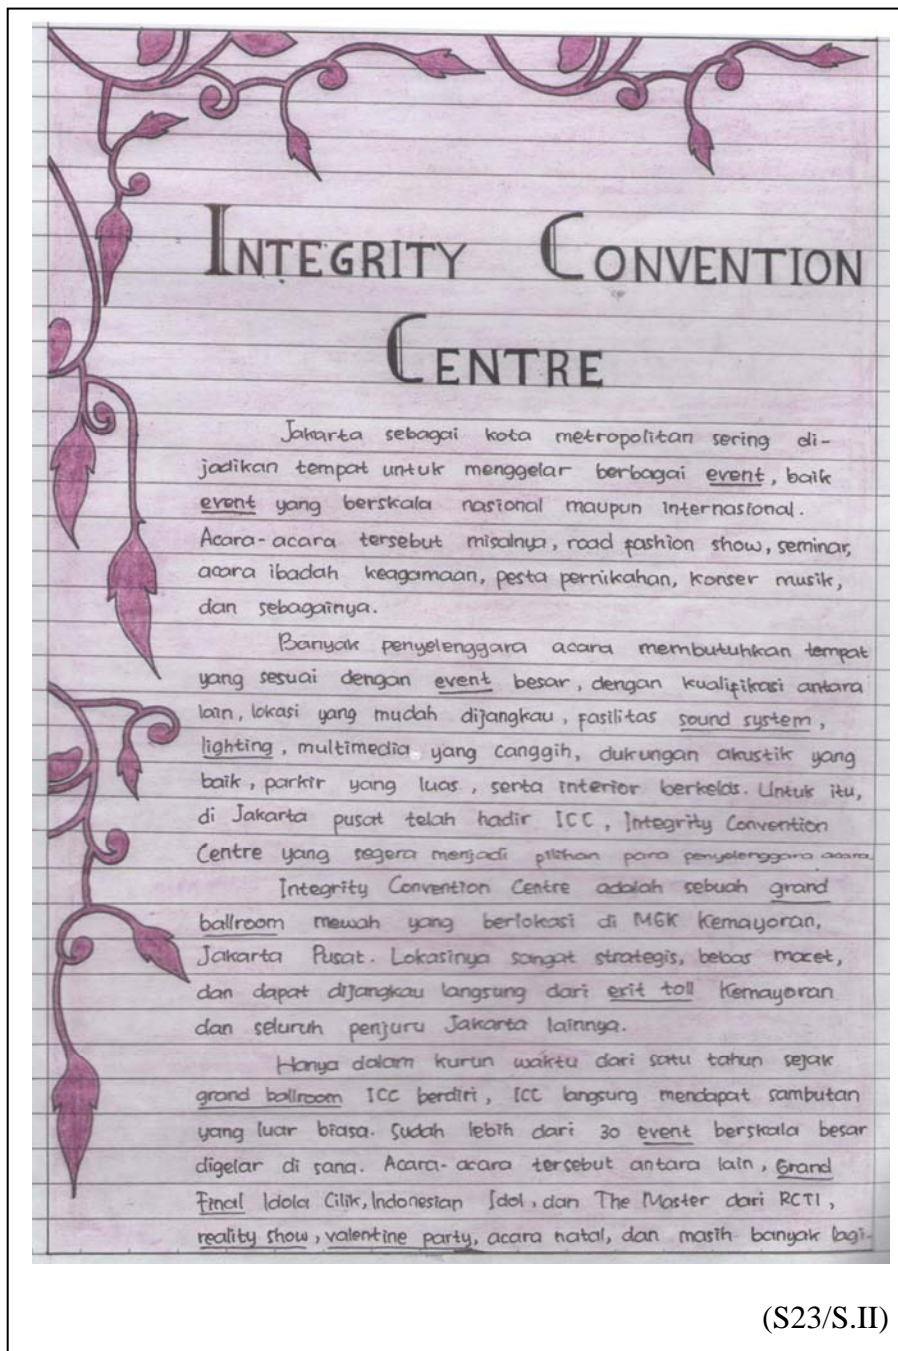 INTEGRITY CONVENTION
CENTRE
Jakarta sebagai kota metropolitan sering di-
jadikan tempat untuk menggelar berbagai event, baik
event yang berskala nasional maupun internasional.
Acara-acara tersebut misalnya, road fashion show, seminar,
acara ibadah keagamaan, pesta pernikahan, konser musik,
dan sebagainya.
Banyak penyelenggara acara membutuhkan tempat
yang sesuai dengan event besar, dengan kualifikasi antara
lain, lokasi yang mudah dijangkau, fasilitas sound system,
lighting, multimedia yang canggih, dukungan akustik yang
baik, parkir yang luas, serta interior berkelas. Untuk itu,
di Jakarta pusat telah hadir ICC, Integrity Convention
Centre yang segera menjadi pilihan para penyelenggara acara
Integrity Convention Centre adalah sebuah grand
ballroom mewah yang berlokasi di MGK Kemayoran,
Jakarta Pusat. Lokasinya sangat strategis, bebas macet,
dan dapat dijangkau langsung dari exit toll Kemayoran
dan seluruh penjuru Jakarta lainnya.
Hanya dalam kurun waktu dari satu tahun sejak
grand ballroom ICC berdiri, ICC langsung mendapat sambutan
yang luar biasa. Sudah lebih dari 30 event berskala besar
digelar di sana. Acara-acara tersebut antara lain, Grand
Final Idola Cilik, Indonesian Idol, dan The Master dari RCTI,
reality show, valentine party, acara natal, dan masih banyak lagi.
(S23/S.II)